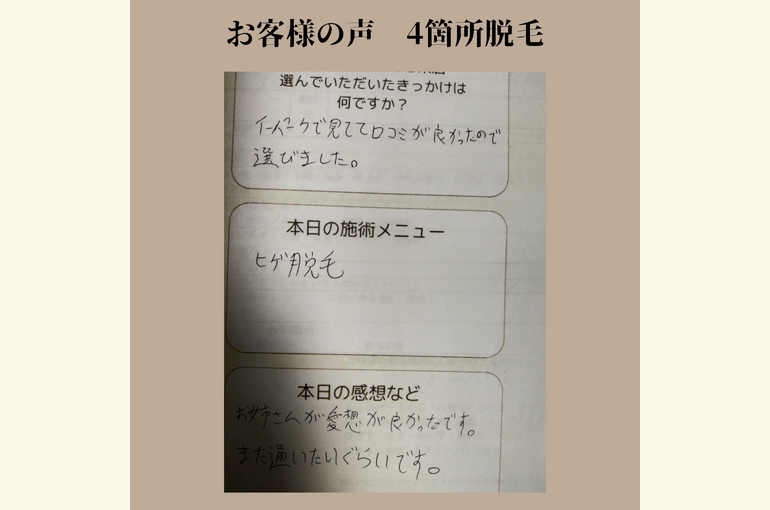 お客様の声 4箇所脱毛
選んでいただいたきっかけは
何ですか？
で見てて口コミが良かったので
選びました。
本日の施術メニュー
ヒゲ脱毛
本日の感想など
お姉さんが愛想が良かったです。
また通いたいぐらいです。